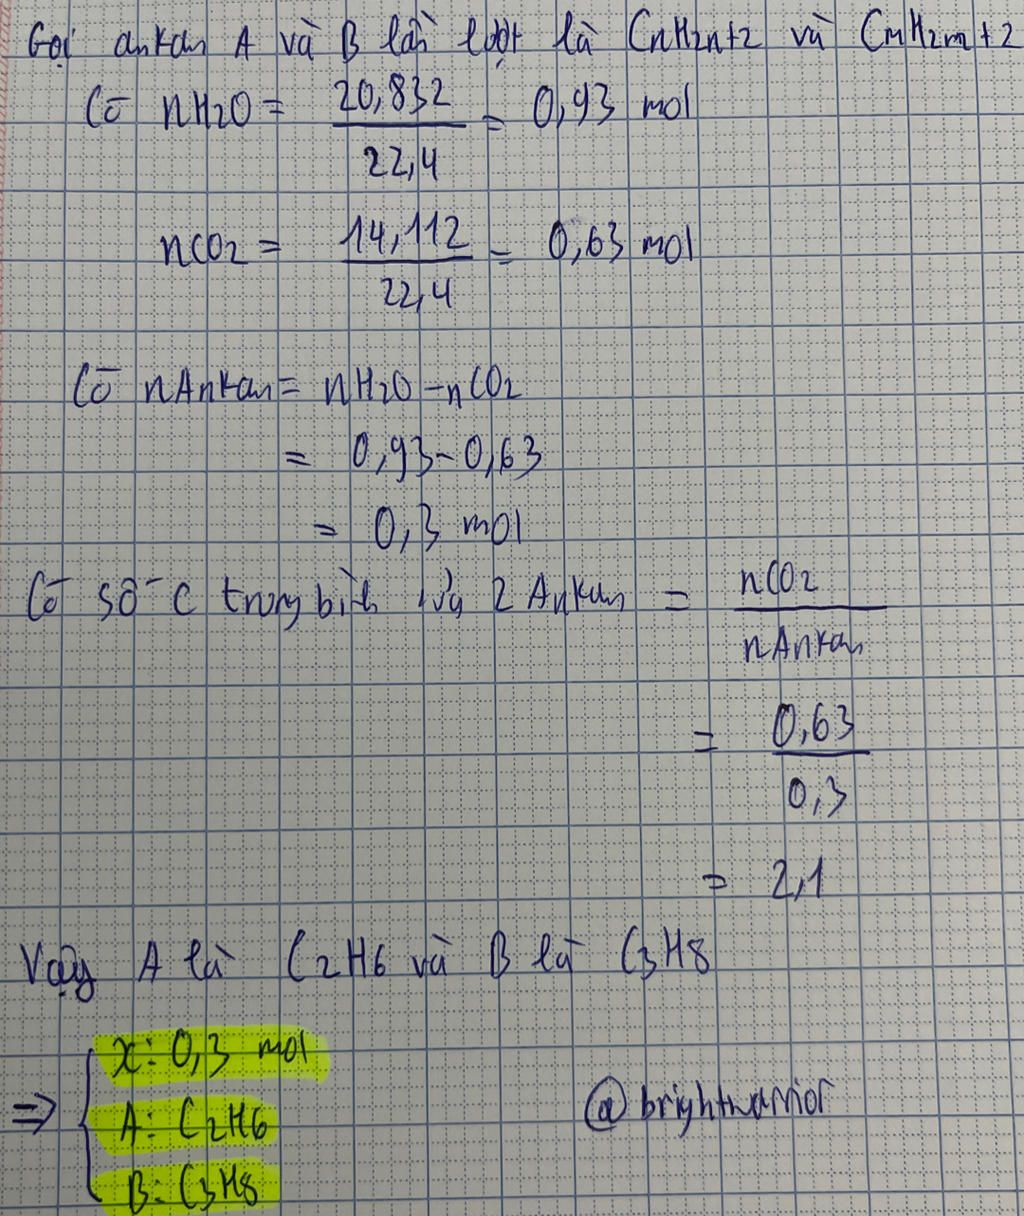 Gọi ankan A và B lần lượt là CnH2n+2 và CmH2m+2
Có nH2O = 20,832 / 22,4 = 0,93 mol
nCO2 = 14,112 / 22,4 = 0,63 mol
Có nAnkan = nH2O - nCO2
= 0,93 - 0,63
= 0,3 mol
Có số C trung bình của 2 Ankan = nCO2 / nAnkan
= 0,63 / 0,3
= 2,1
Vậy A là C2H6 và B là C3H8
=> { x: 0,3 mol
A: C2H6
B: C3H8
@brightwarrior